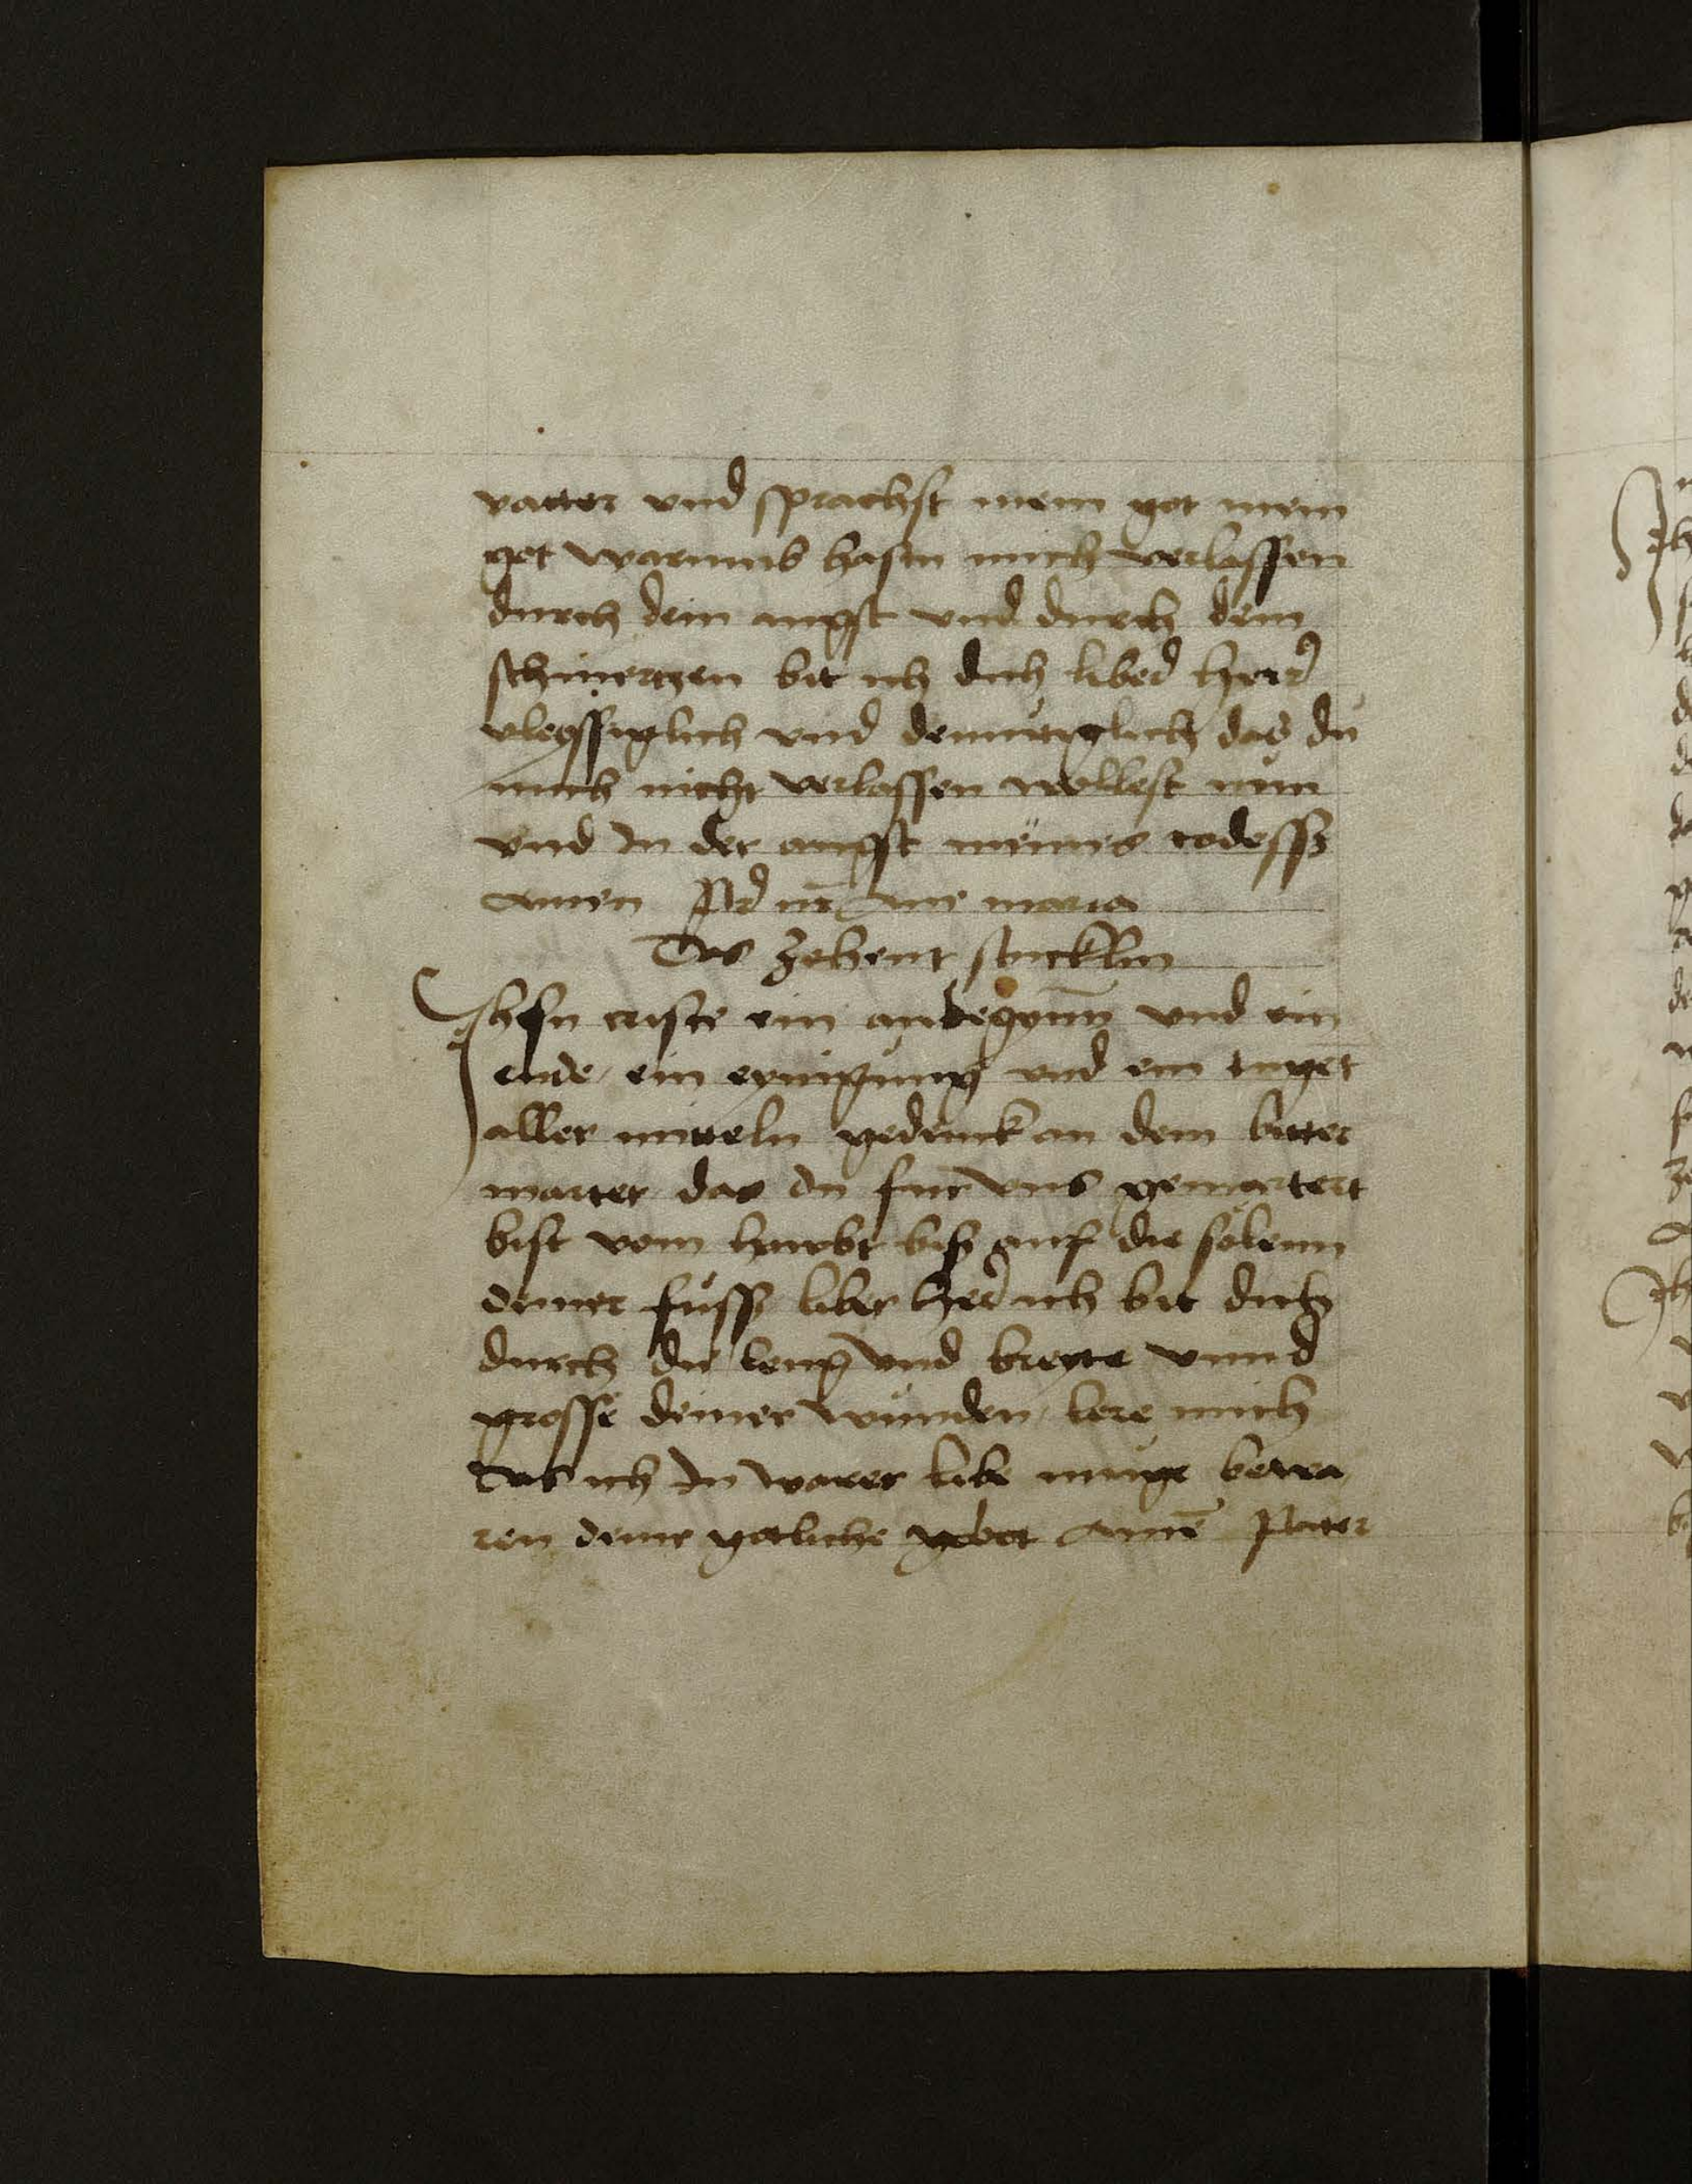 vatter vnd sprachst mein got mein
got warumb hastu mich verlassen
durch dein angst vnd durch dein
schmertzen bit ich dich liber herr
vleyssiglich vnd demutiglich das du
mich nicht verlassen wollest nun
vnd In der angst meines todessz
Amen Pr nr Aue maria
Das zehent stucklin
Jhesu criste ein anbegynn vnd ein
ende ein eynigung vnd ein tuget
aller mitteln gedenck an dein bitter
marter das du fur vns gemartert
bist vom hawbt bisz auf die solenn
deiner fussz liber her ich bit dich
durch die leng vnd breyte vnnd
grosse deiner wunden lere mich
das ich In warer libe muge bewa
ren deine gotliche gebot Amē Pater